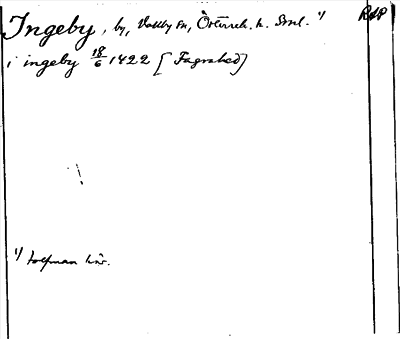 Ingeby, by, Vallby sn, Österrek. h. Sml. ¹⁾ RAP
i ingeby 18/6 1422 [Fagrahed]
¹⁾ tolfman här.